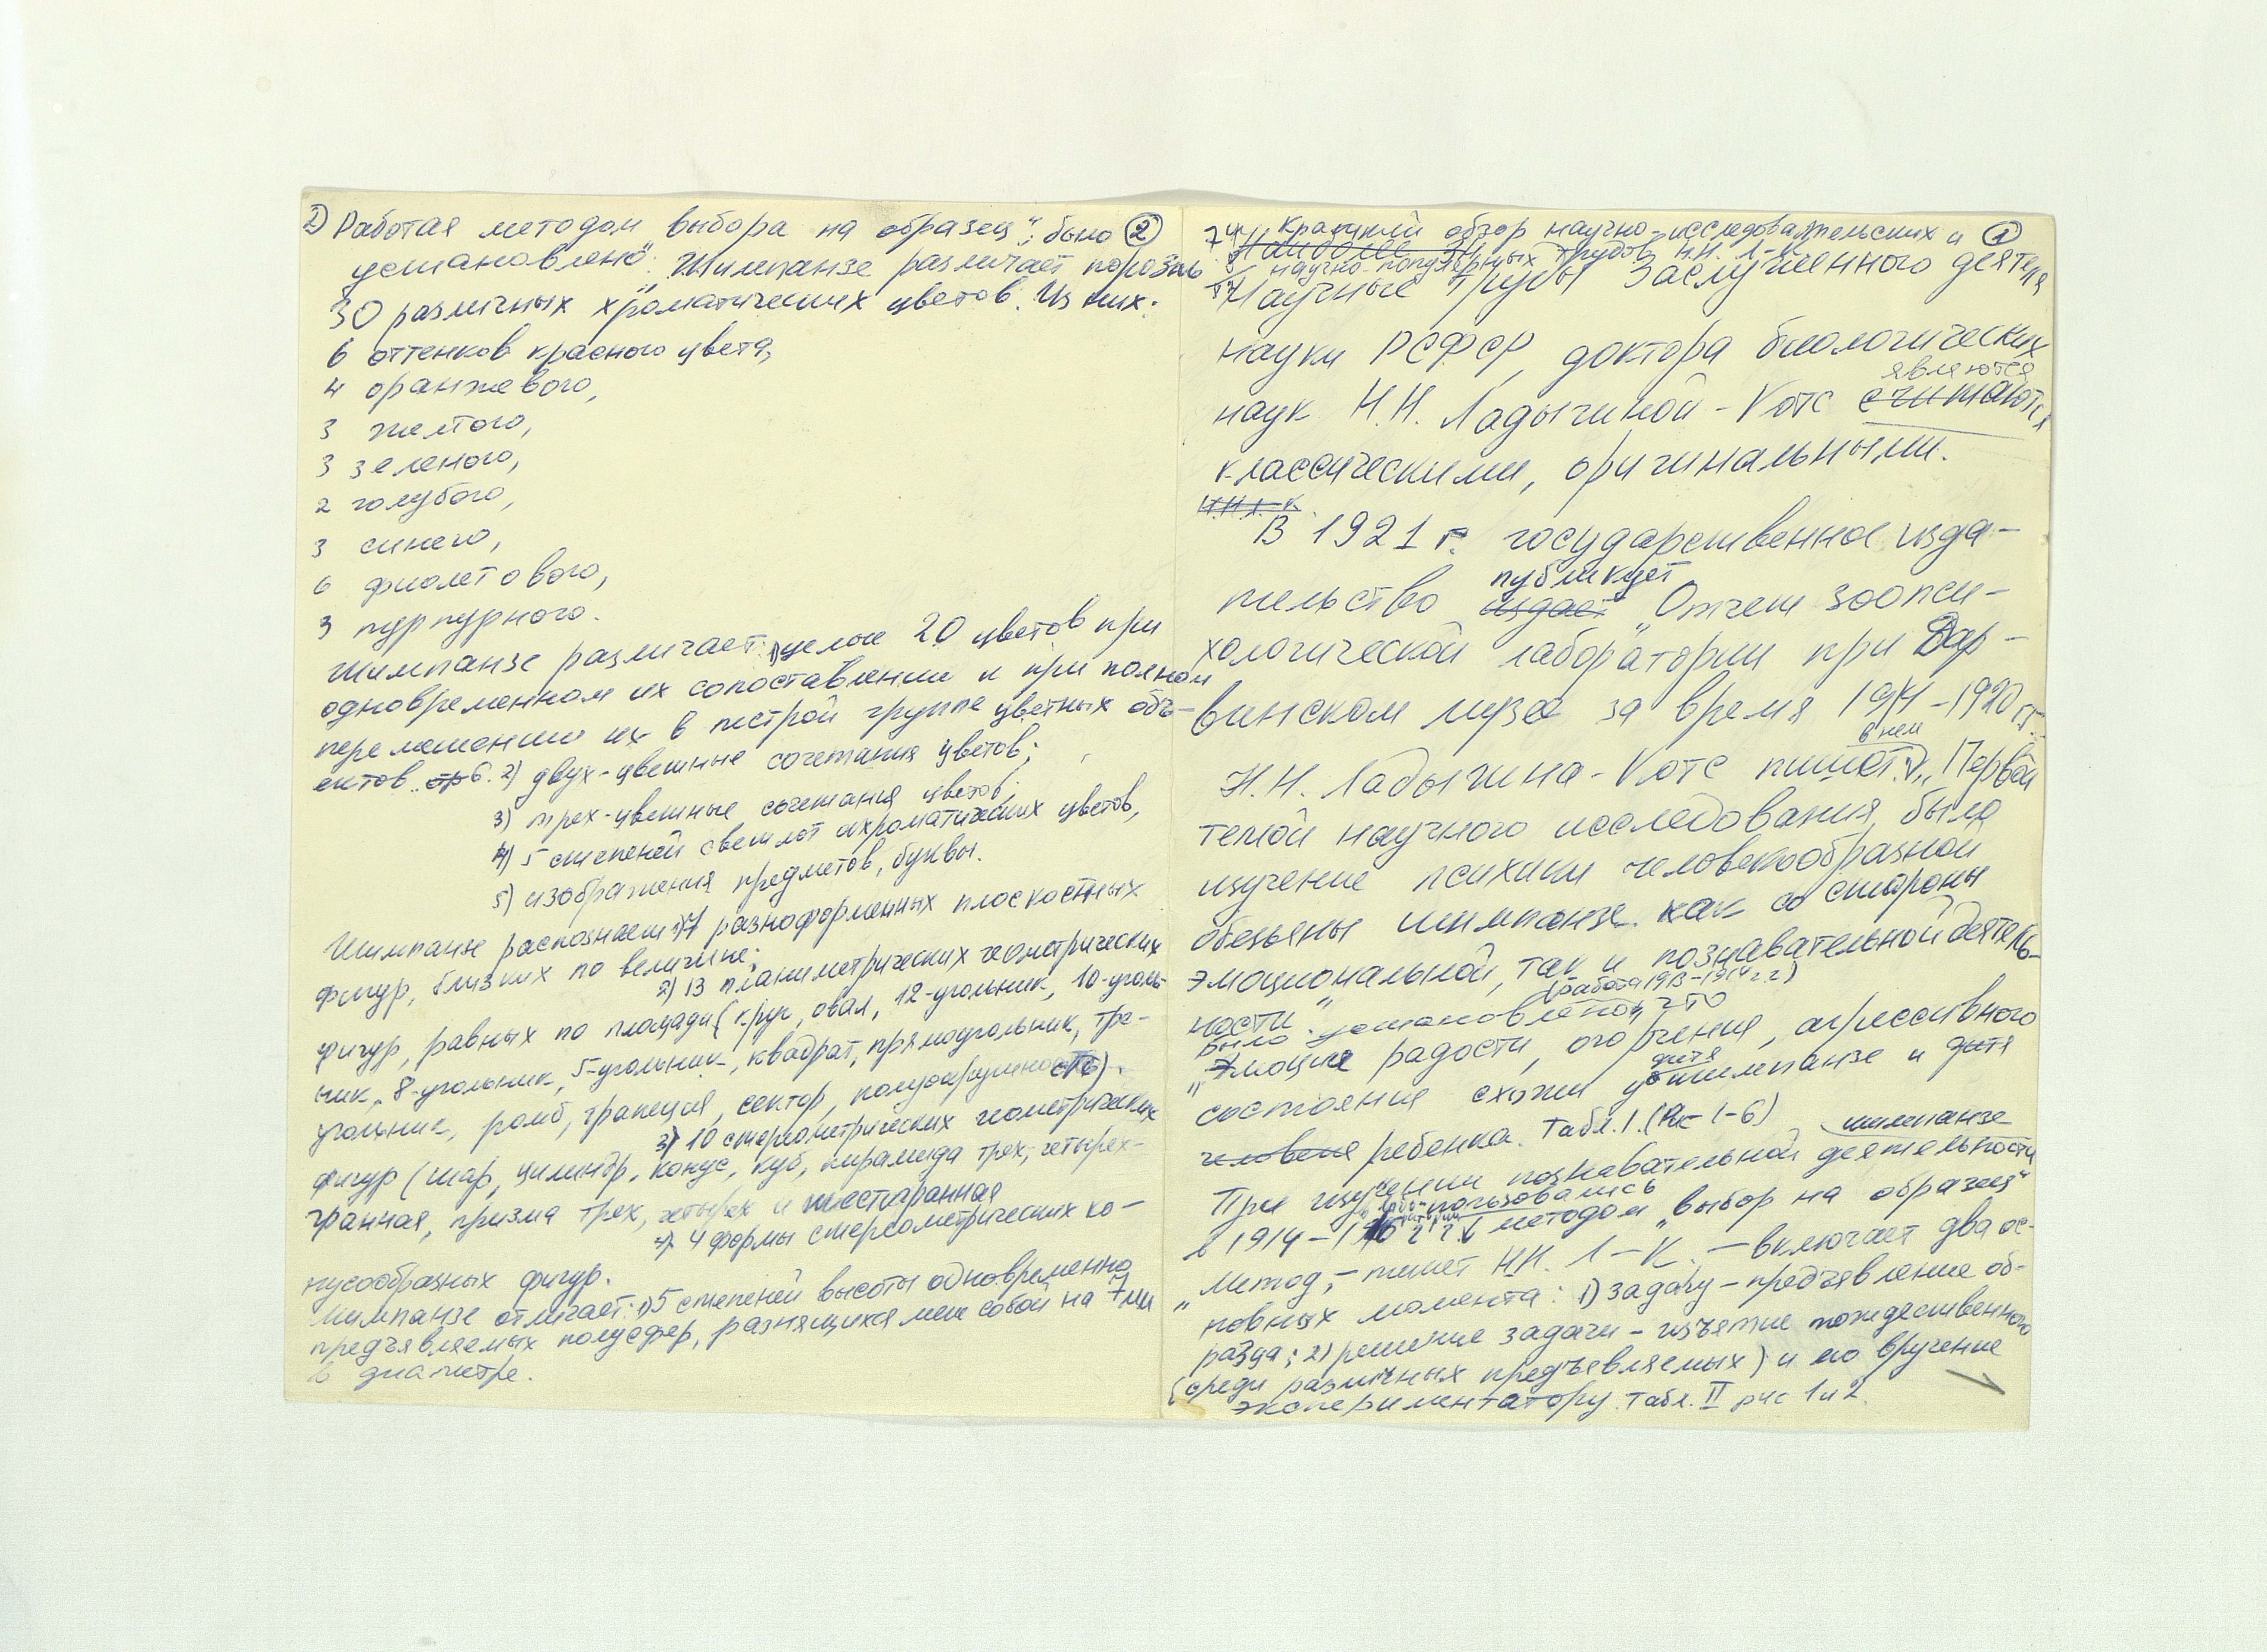 ①
Краткий обзор научно-исследовательских и
научно-популярных трудов Н.Н. Л-К
Научные труды Заслуженного деятеля
науки РСФСР, доктора биологических
являются
наук Н.Н. Ладыгиной-Котс считаются
классическими, оригинальными.
Н.Н.Л-К.
В 1921 г. государственное изда-
публикует
тельство издает „Отчет зоопси-
хологической лаборатории при Дар-
винском музее за время 1914-1920 гг.
в нем
Н.Н. Ладыгина-Котс пишет: „Первой
темой научного исследования было
изучение психики человекообразной
обезьяны шимпанзе как со стороны
эмоциональной, так и познавательной деятель-
(работа 1913-1914 г.г)
ности". установлено, что
было
„Эмоции радости, огорчения, агрессивного
дитя
состояния схожи у шимпанзе и дитя
человека ребенка. Табл. 1. (Рис 1-6)
шимпанзе
При изучении познавательной деятельности
пользовались
в 1914-1916 г.г. методом „выбор на образец"
„Метод, - пишет Н.Н. Л-К. - включает два ос-
новных момента: 1) задачу - предъявление об-
разца; 2) решение задачи - изъятие тождественного
(среди различных предъявляемых) и его вручение
экспериментатору. Табл. II рис 1 и 2.
2) Работая методом выбора на образец", было ②
установлено: Шимпанзе различает порознь
30 различных хроматических цветов. Из них:
6 оттенков красного цвета,
4 оранжевого,
3 желтого,
3 зеленого,
2 голубого,
3 синего,
6 фиолетового,
3 пурпурного.
Шимпанзе различает: 1) целые 20 цветов при
одновременном их сопоставлении и при полном
перемешении их в пестрой группе цветных объ-
ектов. 2) двух-цветные сочетания цветов;
3) трех-цветные сочетания цветов,
4) 5 степеней светлот ахроматических цветов,
5) изображения предметов, буквы.
Шимпанзе распознает: 1) 17 разноформенных плоскостных
фигур, близких по величине;
2) 13 планиметрических геометрических
фигур, равных по площади (круг, овал, 12-угольник, 10-уголь-
ник, 8-угольник, 5-угольник, квадрат, прямоугольник, тре-
угольник, ромб, трапеция, сектор, полуокружность).
3) 10 стереометрических геометрических
фигур (шар, цилиндр, конус, куб, пирамида трех, четырех-
гранная, призма трех, четырех и шестигранная
4) 4 формы стереометрических ко-
нусообразных фигур.
Шимпанзе отличает: 1) 5 степеней высоты одновременно
предъявляемых полусфер, разнящихся меж собой на 7 мм
в диаметре.